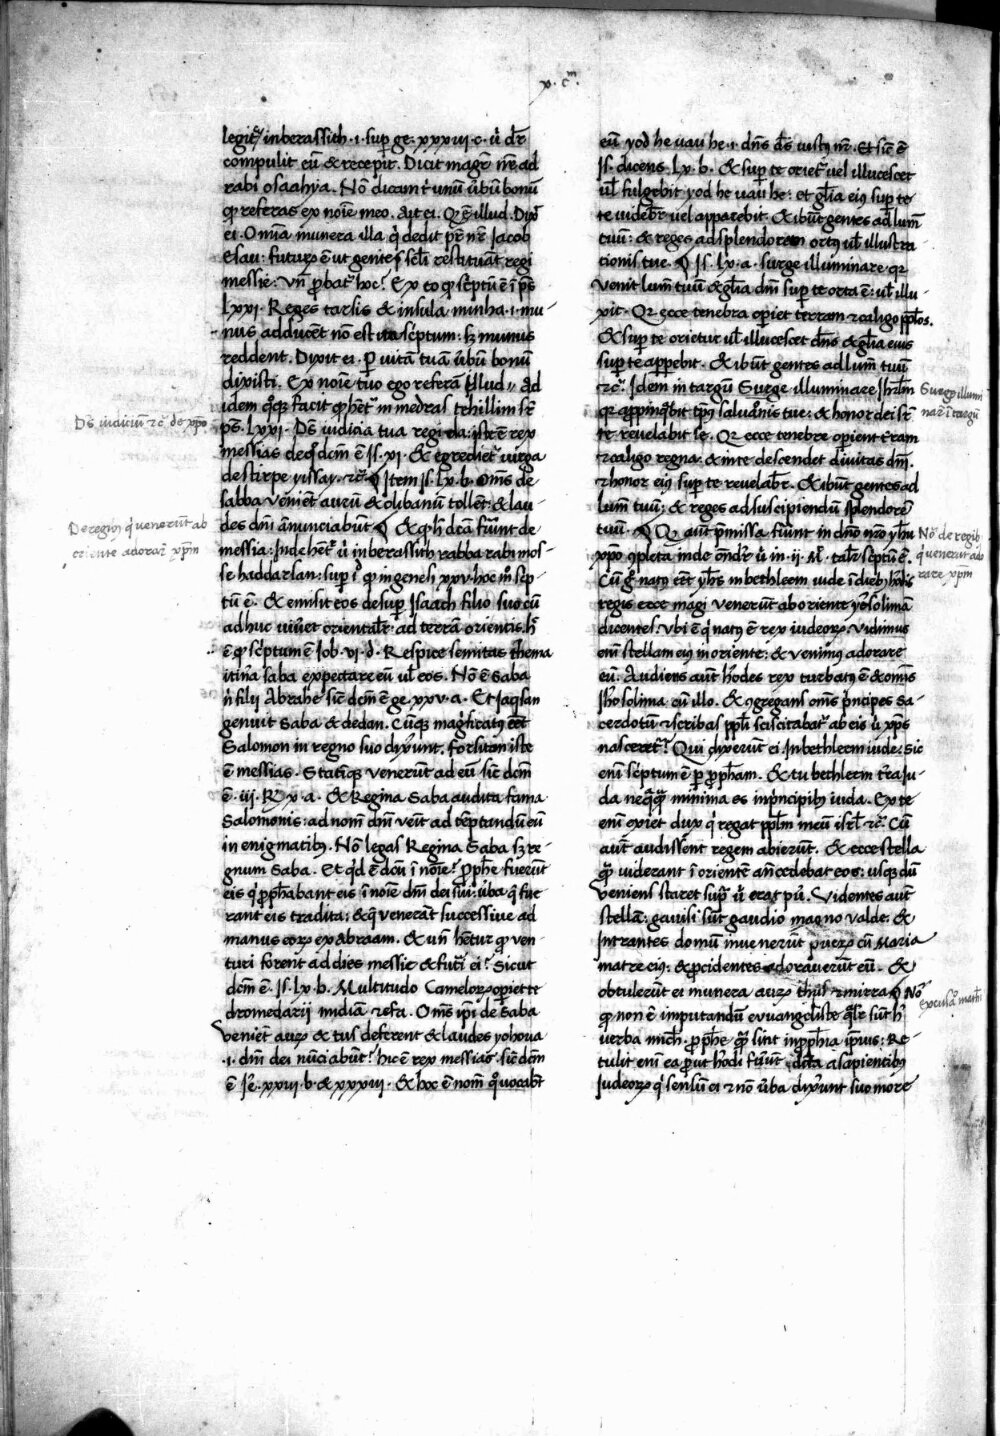 x · cᵐ
legit᷑ in berassith · i · sup ge · xxxvi · c · ĩ dr̃
compulit eũ & recepit. Dicit magr̃ nr̃e ad
rabi osaahya. Nõ dicam t̃ unũ ũbũ bonũ
ꝙ referas ex noĩe meo. Ait ei. Q ẽ illud. Dix̃
ei. Omĩa munera illa q̇ dedit pr̃ nr̃ Jacob
Esau: futurꝝ ẽ ut gentes scl̃i restituãt regi
messie: Vñ ꝓbat᷑ hoc? Ex eo ꝙ sc̃ptũ ẽ ĩ ps̃
Lxxi. Reges tarsis & insula minha · i · mu-
nus adducẽt non est ita sc̃ptum: sꝫ munus
reddent. Dixit ei. P uitã tuã ũbũ bonũ
dixisti. Ex noĩe tuo ego referã illud // ad
idem qq̃ꝫ facit ꝙ hẽt᷑ in medras tehillim sr̃
ps̃. Lxxi. Ds̃ iudicia tua regi da: iste ẽ rex
messias de q̊ dc̃m ẽ Js. xi. & egrediet᷑ uirga
de stirpe yissay · ⁊c̃. Item Js. Lx. b. Om̃s de
sabba veniẽt aurũ & olibanũ tollẽt: & lau-
des dm̃i ãnunciabũt & ꝙ h̃ dc̃a fuẽrint de
messia: Inde hẽt᷑ ĩ in berassith rabba rabi mos-
se haddarsan: sup i᷑ ꝙ in genesi xxv. hoc mº sc̃p-
tũ ẽ. & emisit eos desup Isaach filio suo cũ
adhuc uiũet orientalr̃ ad terrã orientis. h̃
ẽ ꝙ sc̃ptum ẽ Iob. vi. d. Respice semitas thema
itiñra saba expectare eũ ul̃ eos. Nõ ẽ Saba
ñ filii Abrahe sic̃ dc̃m ẽ ge. xxv. a. Et iaqsan
genuit Saba & dedan. Cũq̃ꝫ magficatꝰ eẽt
Salomon in regno suo dixẽrunt. Forsitan iste
ẽ messias. Statimq̃ꝫ venerũt ad eũ sic̃ dc̃m
ẽ. iii. Rx̃. x. a. & Regina Saba audita fama
Salomonis: ad nom̃ dm̃i veñit ad tẽptandũ eũ
in enigmatibꝫ. Nõ legas Regina Saba sꝫ re-
gnum Saba. Et q̇d ẽ dc̃m ĩ noĩe? Ꝓph̃e fuerũt
eis q̇ ꝓph̃abant eis ĩ noĩe dm̃i dei sui: ũba q̃ fue
rant eis tradita: & q̃ venerãt successiue ad
manus eoꝝ ex Abraam. & uñ hẽtur ꝙ ven-
turi forent ad dies messie & futũi ei? Sicut
dc̃m ẽ. Js. Lx. b. Multitudo Cameloꝝ opiet te
dromedarii midiã ⁊ efa. Om̃s ip̃i de Saba
veniẽt auꝝ & tus deferent & laudes yohoua
· i · dm̃i dei nũciabũt? hic ẽ rex messias sic̃ dc̃m
ẽ Je. xxiii. b & xxxiii. & hoc ẽ nom̃ q̊ uocabt̃
Ds̃ iudiciũ ⁊c̃ de xp̃o
De regibꝫ q̇ venerũt ab
oriente adorar̃ xp̃m
eũ yod he uau he · i · dñs ds̃ iustꝰ nr̃. Et sic̃ ẽ
Js. dicens. Lx. b. & sup te oriet᷑ uel illucescet
ul̃ fulgebit yod he uau he: et gl̃ia eiꝰ sup te
te uidebr̃ uel apparebit. & ibũt gentes ad lum̃
tuũ: & reges ad splendorem ortꝰ ul̃ illustra-
tionis tue. Js. Lx. a. Surge illuminare qr
venit lum̃ tuũ & gl̃ia dm̃i sup te orta ẽ: ul̃ illu-
xit. Qr ecce tenebra opiet terram ⁊ caligo pp̃l̃os.
& sup te orietur ul̃ illucescet dñs & gl̃ia eius
sup te appebit. & ibũt gentes ad lum̃ tuũ
⁊c̃. Idem in targũ Surge illuminare Jhr̃lm̃
qr appinq̃bit tp̃ꝰ saluãonis tue: & honor dei sr̃
te reuelabit se. Qr ecce tenebre opient t̃ram
⁊ caligo regna. & in te descendet diuitas dm̃i.
⁊ honor eiꝰ sup te reuelabr̃. & ibũt gentes ad
lum̃ tuũ: & reges ad suscipiendũ splendorẽ
tuũ. Qr aũt p̃missa fuer̃nt in dño nr̃o yh̃u
xp̃o 9pleta inde on̄dr̃ ĩ in · ii · Mᵗ. tal̃r sc̃ptũ ẽ.
Cũ g̊ natꝰ eẽt yh̃s in bethleem iude ĩ diebꝫ h̃odis
regis ecce magi venerũt ab oriente yr̃osolimã
dicentes: Vbi ẽ q̇ natꝰ ẽ rex iudeoꝝ. Vidimus
em̃ stellam eiꝰ in oriente: & venimꝰ adorare
eũ. Audiens aũt h̃odes rex turbatꝰ ẽ & omĩs
Jh̃osolima cũ illo. & 9gregans om̃s p̃ncipes sa-
cerdotũ ⁊ scribas pp̃l̃i sciscitabat᷑ ab eis ĩ xp̃s
nasceret᷑? Qui dixerũt ei. In bethleem iude. Sic
em̃ sc̃ptum ẽ p ꝓph̃am. & tu bethleem t̃ra Ju-
da neq̃q̃ minima es in p̃ncipibꝫ iuda. Ex te
em̃ exiet dux q̇ regat pp̃l̃m meũ isrl̃ ⁊c̃. Cũ
aũt audissent regem abierũt. & ecce stella
qã uiderant ĩ orientẽ añcedebat eos: usq̃ꝫ dũ
veniens staret sup̃ ũ erat pũ. Videntes aũt
stellã: gauisi sũt gaudio magno valde. &
Intrantes domũ inuenerũt pueꝝ cũ Maria
matre eiꝰ: & ꝓcidentes adorauerũt eũ. &
obtulerũt ei munera auꝝ thus ⁊ mirra Nõ
ꝙ non ẽ imputandũ euuangeliste q̃lr̃ sũt h̃
uerba mich̃. ꝓph̃e q̃ sint in ꝓph̃ia ip̃ius: Re-
tulit em̃ ea ꝓut h̃odi fuer̃nt dc̃a a sapientibꝫ
iudeoꝝ q̇ sensũ ei ⁊ nõ ũba dixer̃unt suo more
Surge illumi
nar̃ ĩ targũ
Nõ de regibꝫ
q̇ venerũt ado
rare xp̃m
excusaº math̃i